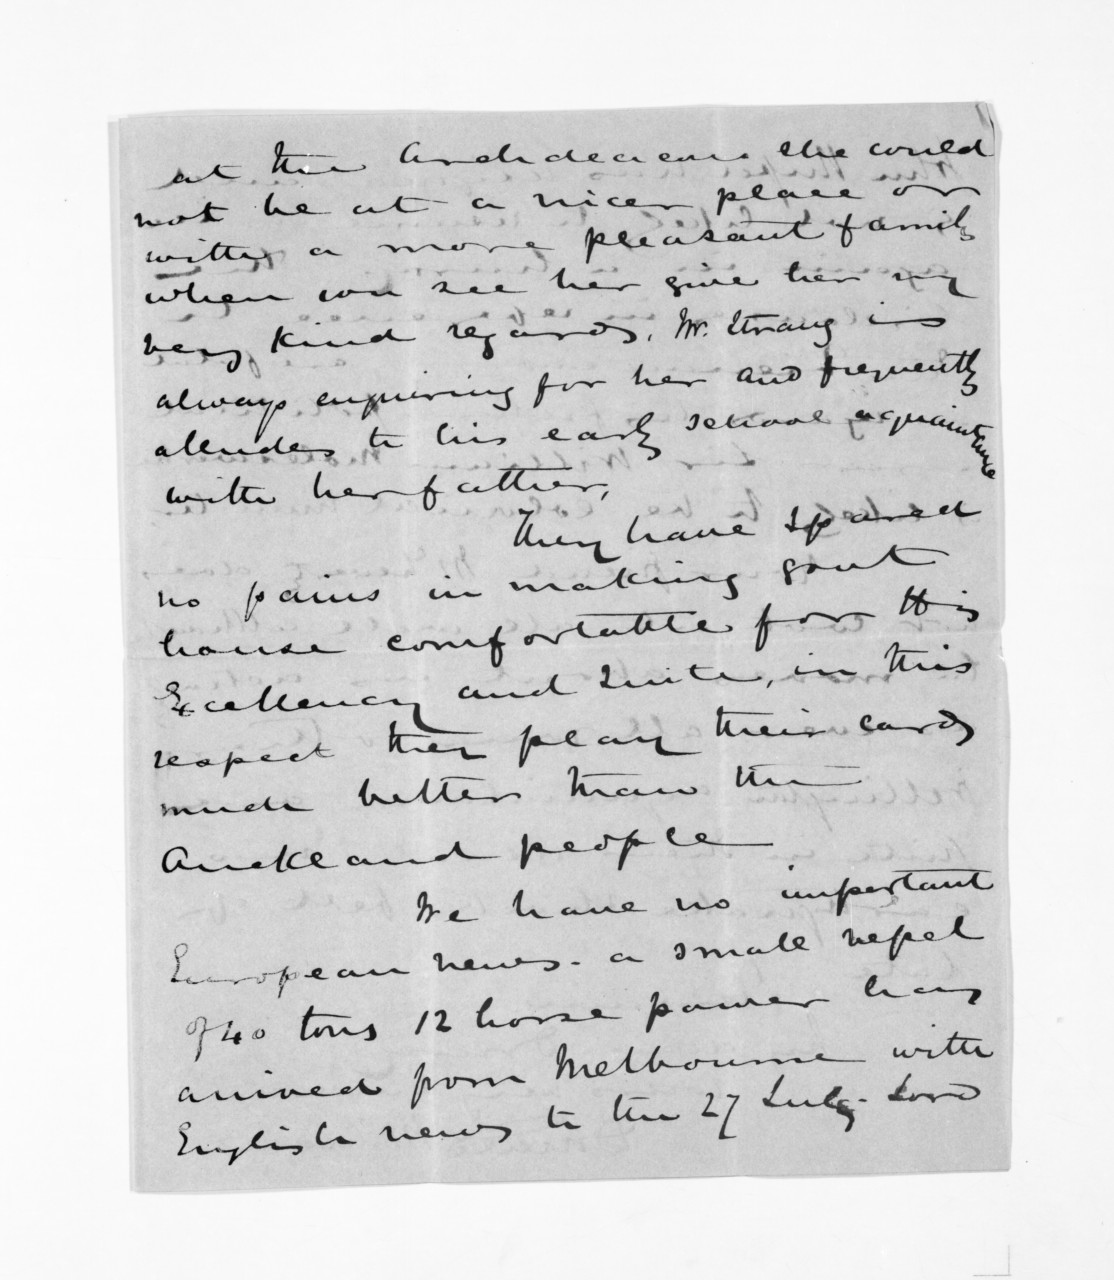 at the Archdeacons she could
not be at a nicer place or
with a more pleasant family
when you see her give her my
very kind regards, Mr. Strang is
always enquiring for her and frequently
alludes to his early school acquaintance
with her father,
They have spared
no pains in making govt
house comfortable for His
Excellency and Suite, in this
respect they play their cards
much better than the
Auckland people
We have no important
European news - a small vessel
of 40 tons 12 horse power has
arrived from Melbourne with
English news to the 27 July. Lord